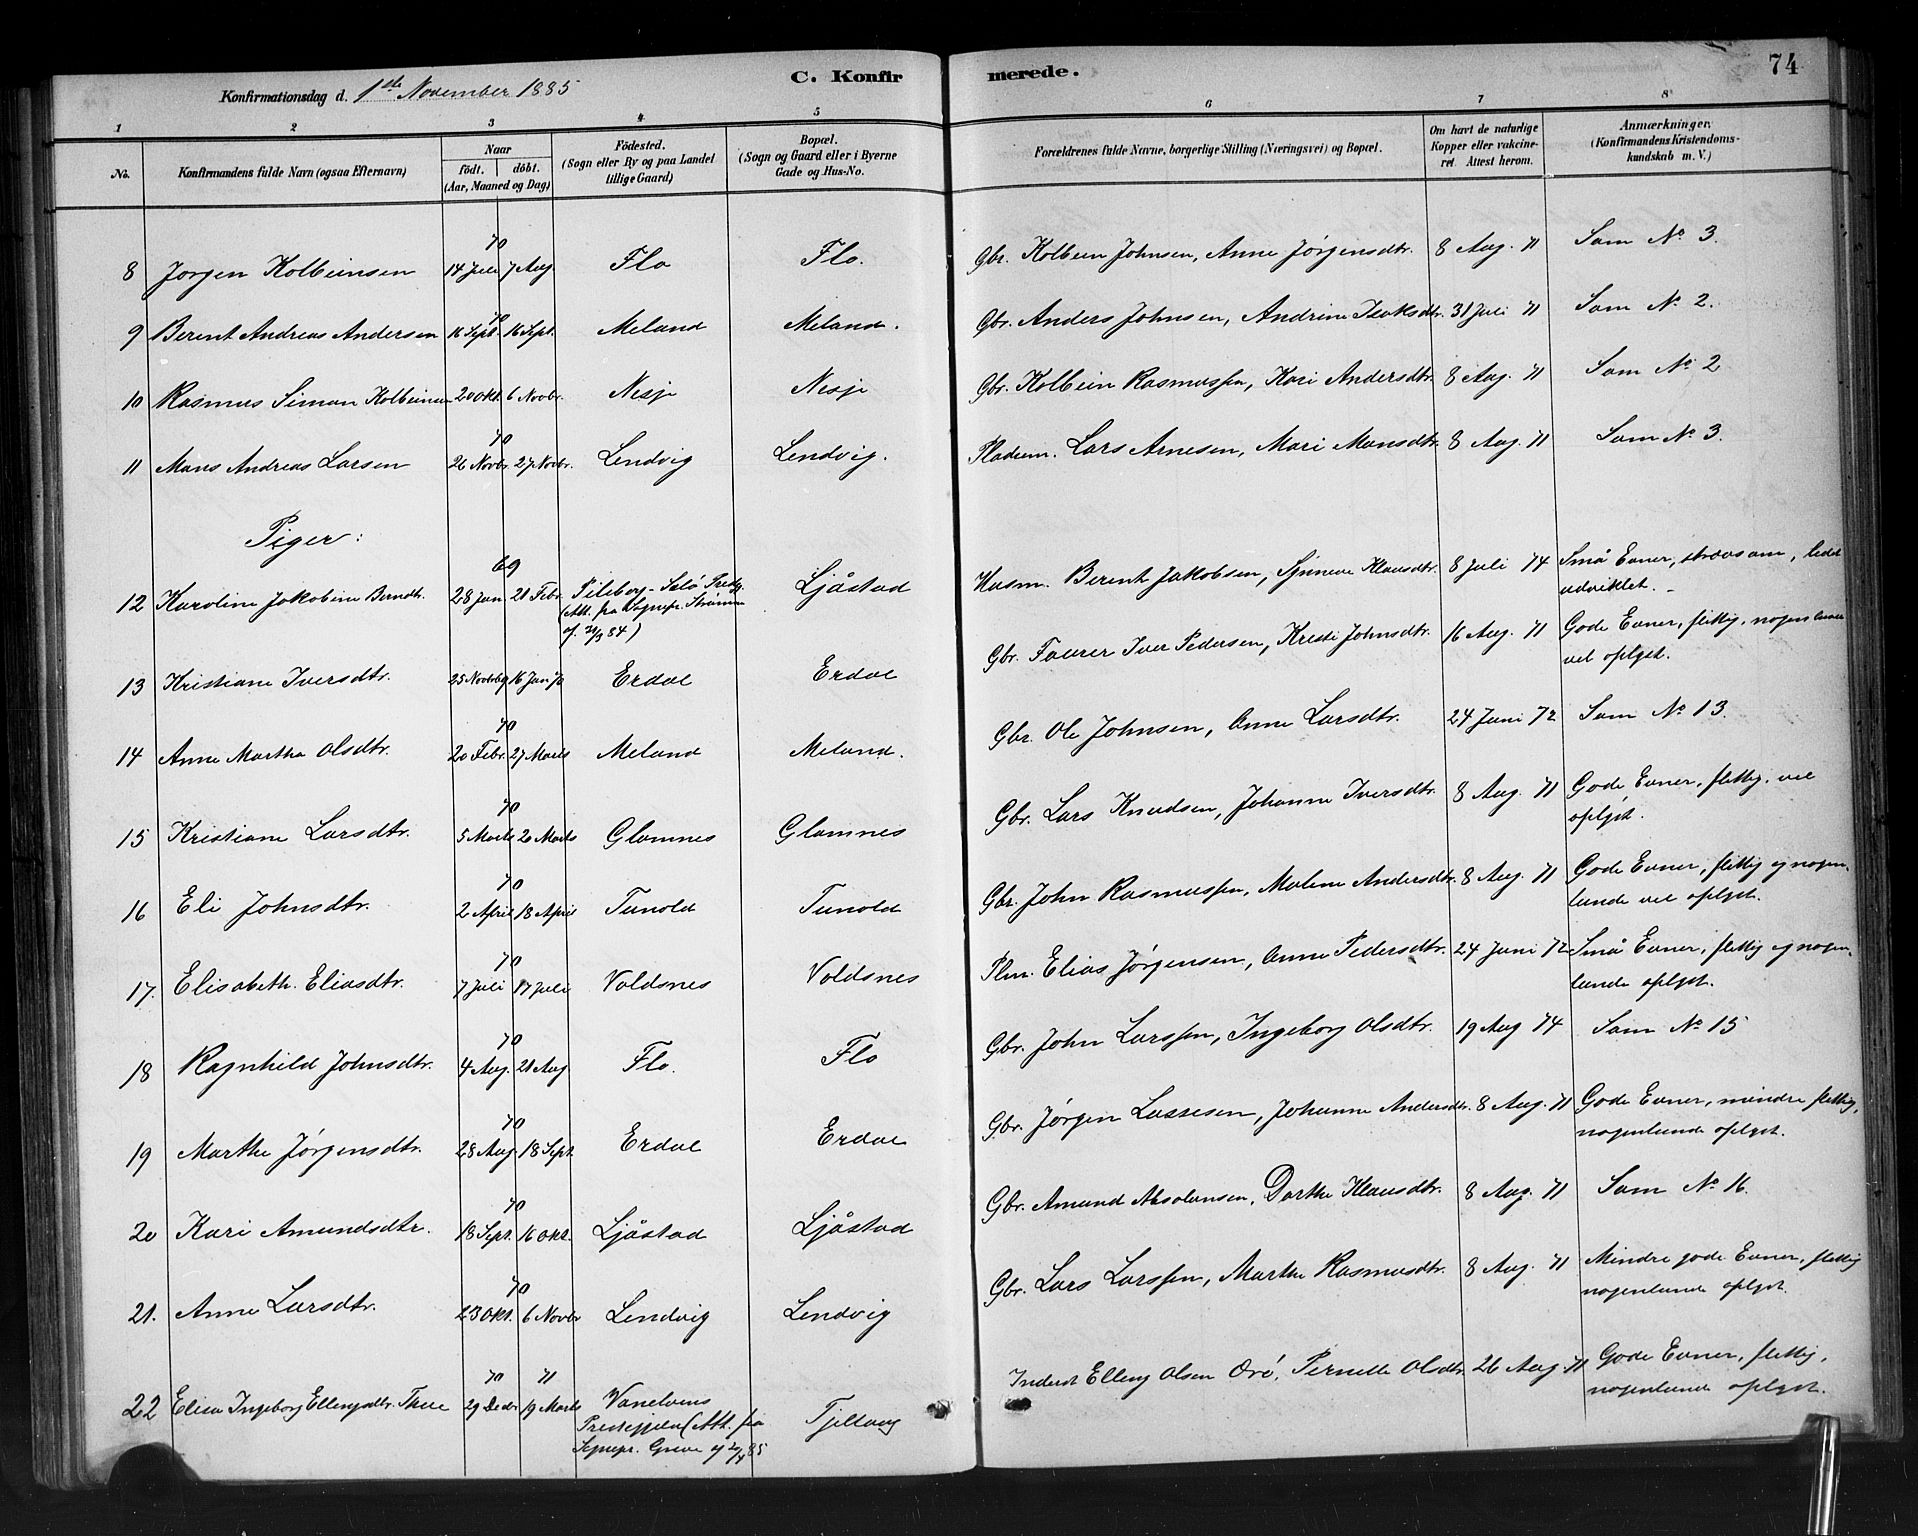 74
C. Konfirmerede.
Konfirmationsdag d. 1ste November 1885
1 2 3 4 5 6 7 8
No. Konfirmandens fulde Navn (ogsaa Efternavn) Naar födt. döbt. (Aar, Maaned og Dag) Födested. (Sogn eller By og paa Landet tillige Gaard) Bopæl. (Sogn og Gaard eller i Byerne Gade og Hus-No. Forældrenes fulde Navne, borgerlige Stilling (Næringsvei) og Bopæl. Om havt de naturlige Kopper eller vakcineret. Attest herom. Anmærkninger, (Konfirmandens Kristendomskundskab m. V.)
70
8 Jørgen Kolbeinsen 14 Juli 7 Aug. Flo Flo. Gbr. Kolbein Johnsen, Anne Jørgensdtr. 8 Aug. 71 Som No 3.
70
9 Berent Andreas Andersen 16 Sept. 16 Sept. Meland Meland. Gbr. Anders Johnsen, Andrine Isaksdtr. 31 Juli 71 Som No 2.
10 Rasmus Simon Kolbeinsen 20 Okt. 6 Novbr. Nesje Nesje Gbr. Kolbein Rasmussen, Kari Andersdtr. 8 Aug. 71 Som No 2
70
11 Mons Andreas Larsen 26 Novbr. 27 Novbr. Lendvig Lendvig. Pladsem. Lars Arnesen, Mari Monsdtr. 8 Aug. 71 Som No 3.
Piger:
69
12 Karoline Jakobine Berndtr. 28 Jan. 21 Febr. Ljåstad Husm. Berent Jakobsen, Synneve Klausdtr. 8 Juli 74 Små Evner, strævsom,
udviklet.
(Att. fra Sognepr.
13 Kristiane Iversdtr. 25 Novbr. 69 16 Jan 70 Erdal Erdal Gbr. Iver Pedersen, Kristi Johnsdtr. 16 Aug. 71 Gode Evner, flittig, nogenlunde
vel oplyst.
70
14 Anne Martha Olsdtr. 20 Febr. 27 Marts Meland Meland. Gbr. Ole Johnsen, Anne Larsdtr. 24 Juni 72 Som No 13.
70
15 Kristiane Larsdtr. 5 Marts 20 Marts Glomnes Glomnes Gbr. Lars Knudsen, Johanne Iversdtr. 8 Aug. 71 Gode Evner, flittig, vel
oplyst.
70
16 Eli Johnsdtr. 2 April 18 April Tunold Tunold Gbr. John Rasmussen, Malene Andersdtr. 8 Aug. 71 Gode Evner, flittig og nogen-
lunde vel oplyst.
70
17. Elisabeth Eliasdtr. 7 Juli 17 Juli Voldsnes Voldsnes Plm. Elias Jørgensen, Anne Pedersdtr. 24 Juni 72 Små Evner, flittig og nogen-
lunde oplyst.
70
18 Ragnhild Johnsdtr. 4 Aug. 21 Aug Flo. Flo Gbr. John Larssen, Ingeborg Olsdtr. 19 Aug 74 Som No 15
70
19 Marthe Jørgensdtr. 28 Aug. 18 Sept. Erdal Erdal Gbr. Jørgen Lassesen, Johanne Andersdtr. 8 Aug. 71 Gode Evner, mindre flittig,
nogenlunde oplyst.
70
20 Kari Amundsdtr. 18 Sept. 16 Okt. Ljåstad Ljåstad Gbr. Amund Absolonsen, Dorthe Klausdtr. 8 Aug. 71 Som No 16.
70
21. Anne Larsdtr. 23 Okt. 6 Novbr Lendvig Lendvig Gbr. Lars Larssen, Marthe Rasmusdtr. 8 Aug. 71 Mindre gode Evner, flittig
nogenlunde oplyst.
70 71
22 Elisa Ingeborg Ellingsdtr. 29 Decbr 19 Marts Vanelvens Tjellaug Inderst Elling Olsen Orö, Pernelle Olsdtr. 26 Aug. 71 Gode Evner, flittig,
Prestegjeld (Att. fra nogenlunde oplyst.
Sognepr. Greve